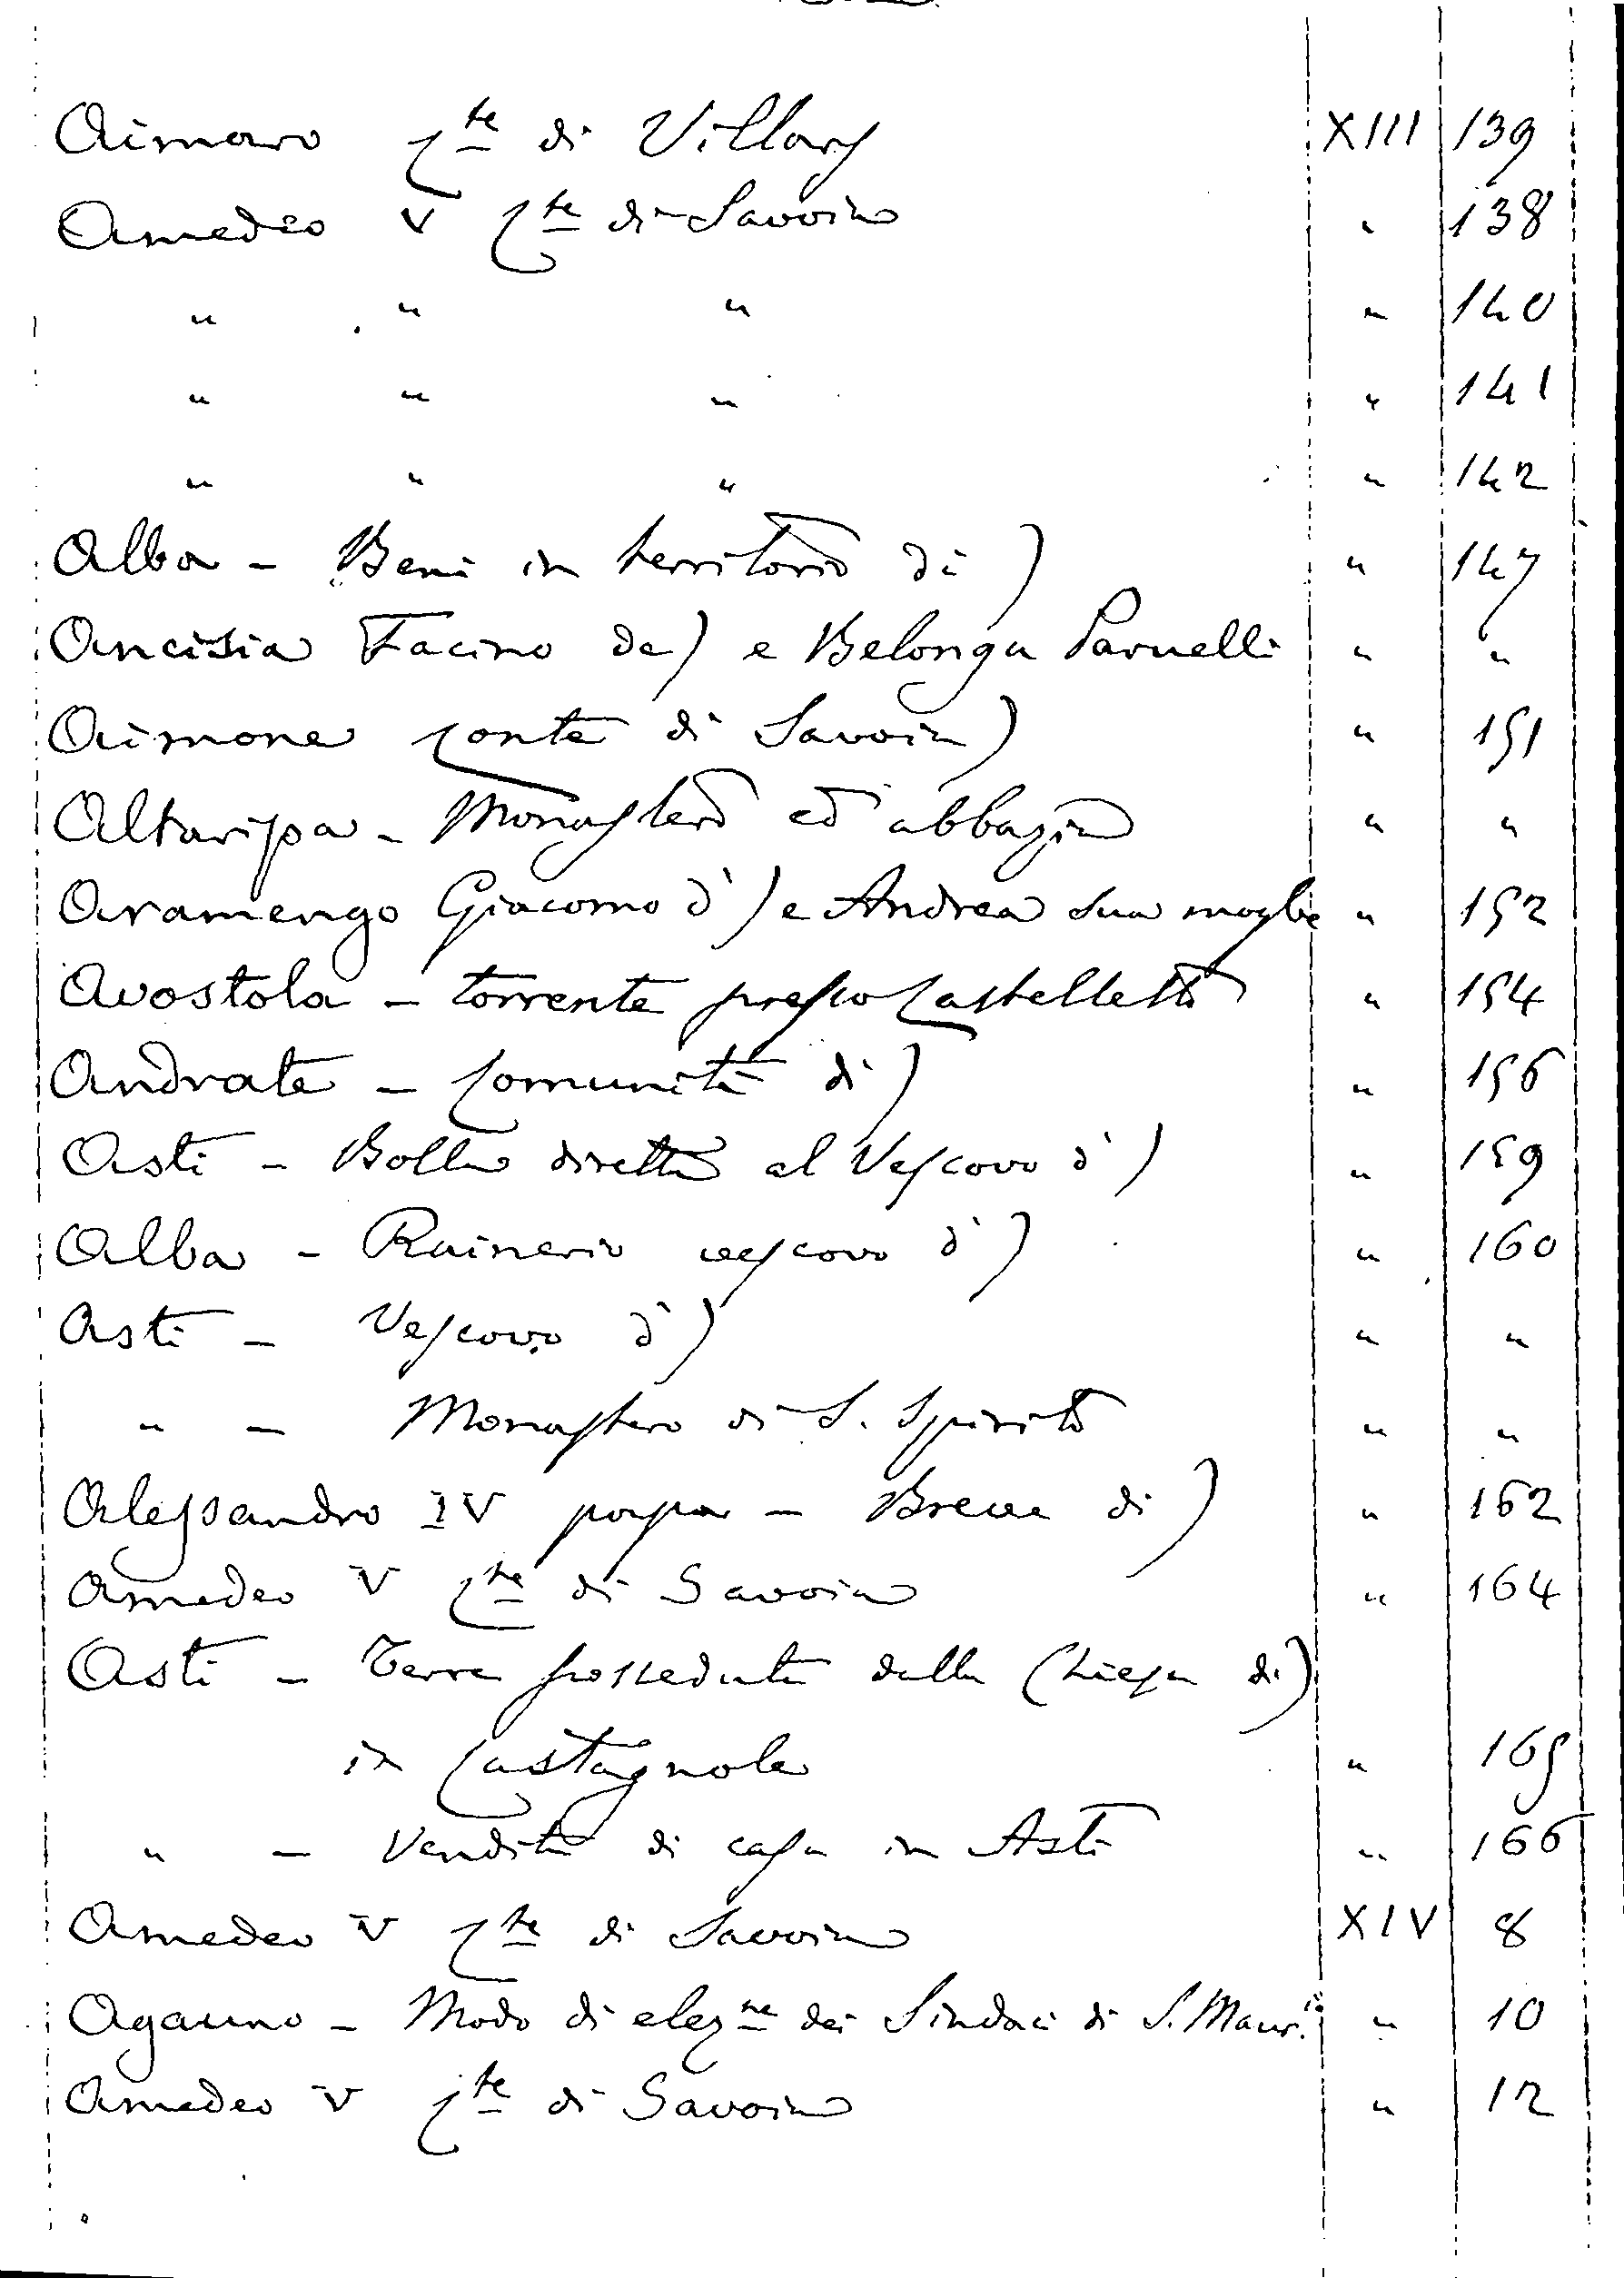 Aimaro Cte di Villars XIII 139
Amedeo V Cte di Savoia " 138
" " " " 140
" " " " 141
" " " " 142
Alba - Beni in territorio di) " 147
Ancisia Facino de) e Belonga Paruelli " "
Aimone Conte di Savoia) " 151
Altaripa - Monastero ed abbazia " "
Aramengo Giacomo d') e Andrea sua moglie " 152
Avostola - torrente presso Castelletto " 154
Andrate - Comunità di) " 156
Asti - Bolla diretta al Vescovo d') " 159
Alba - Rainerio vescovo d') " 160
Asti - Vescovo d') " "
" - Monastero di S. Spirito " "
Alessandro IV papa - Breve di) " 162
Amedeo V Cte di Savoia " 164
Asti - Terra posseduta dalla Chiesa di)
in Castagnole " 165
" - Vendita di casa in Asti " 166
Amedeo V Cte di Savoia XIV 8
Agauno - Modo di elezne dei Sindaci di S. Maur.io " 10
Amedeo V Cte di Savoia " 12